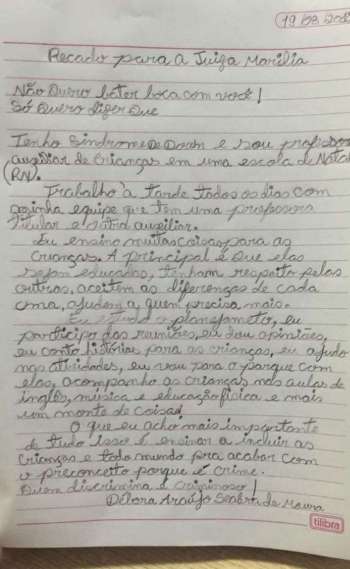 19 03
Recado para a Juíza Marília
Não Quero bater boca com você!
Só Quero dizer Que
Tenho Síndrome De Down e sou professora
auxiliar de crianças em uma escola de Natal
(RN).
Trabalho à tarde todos os dias com
minha equipe que tem uma professora
titular e outra auxiliar.
Eu ensino muitas coisas para as
crianças. A principal é Que elas
sejam educadas, tenham respeito pelas
outras, aceitem as diferenças de cada
uma, ajudem a quem precisa mais.
Eu estudo o planejamento, eu
participo das reuniões, eu dou opiniões,
eu conto histórias para as crianças, eu ajudo
nas atividades, eu vou para o parque com
elas, acompanho as crianças nas aulas de
inglês, música e educação física e mais
um monte de coisas.
O que eu acho mais importante
de tudo isso é ensinar a incluir as
crianças e todo mundo pra acabar com
o preconceito porque é crime.
Quem discrimina é criminoso!
Débora Araújo Seabra de Moura
tilibra